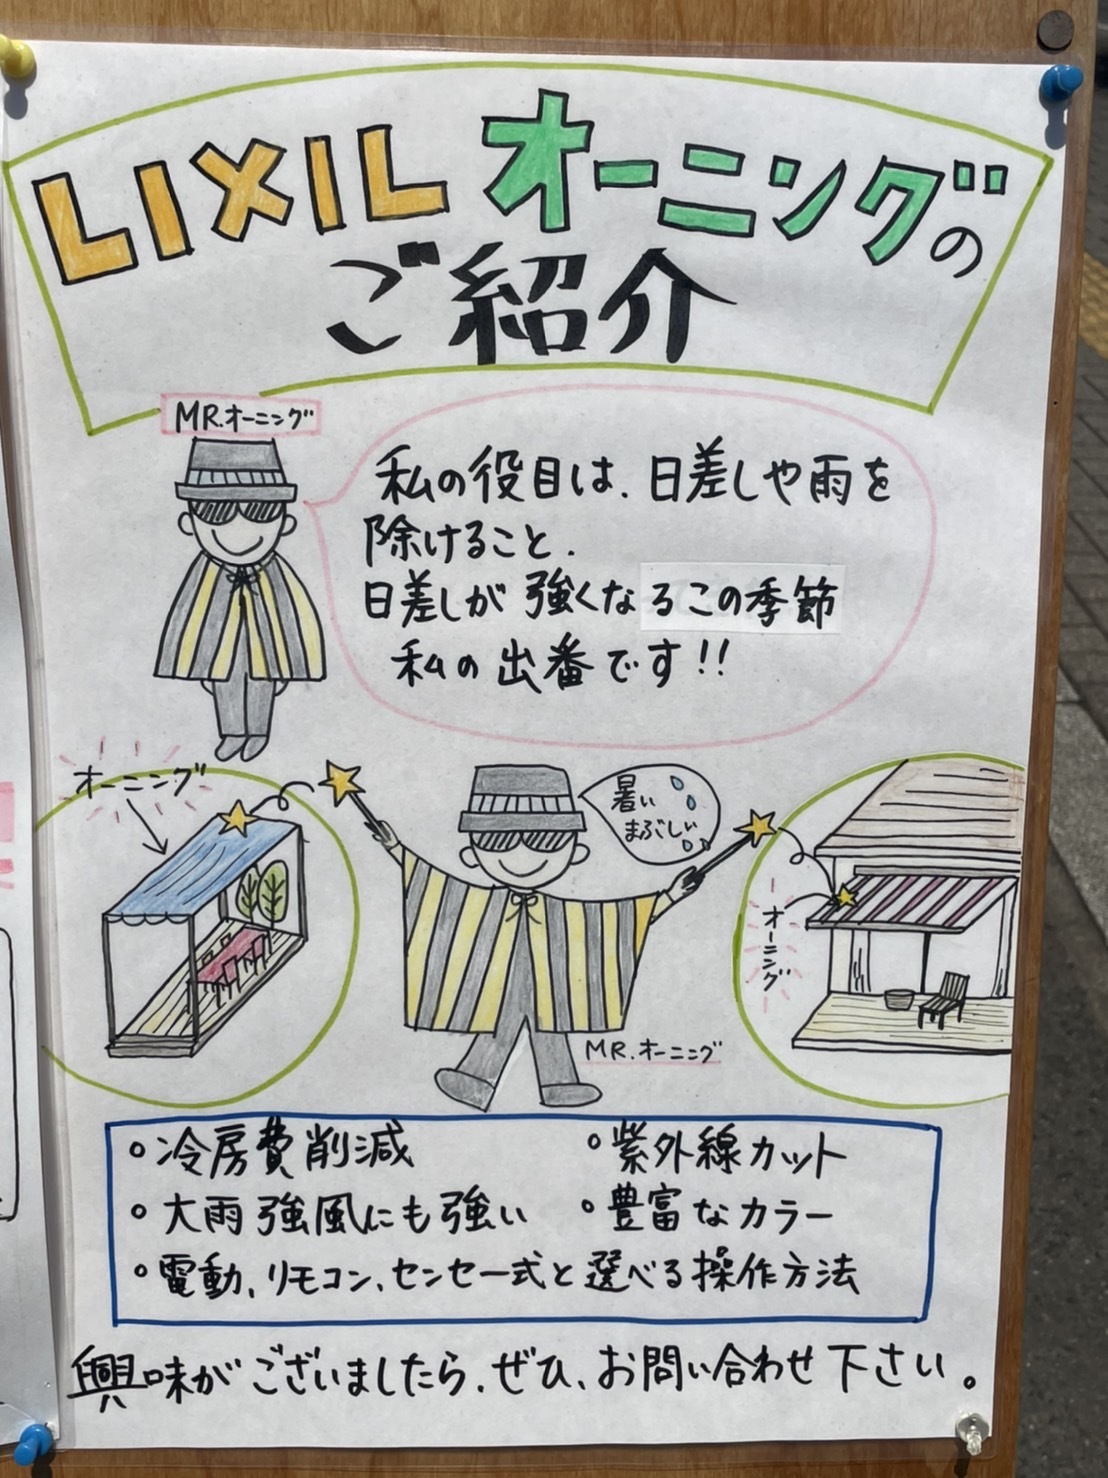 LIXIL オーニングの
ご紹介
MR.オーニング
私の役目は、日差しや雨を
除けること.
日差しが強くなるこの季節
私の出番です!!
オーニング
暑い
まぶしい
オーニング
MR.オーニング
・冷房費削減
・紫外線カット
・大雨強風にも強い
・豊富なカラー
・電動、リモコン、センセー式と選べる操作方法
興味がございましたら、ぜひ、お問い合わせ下さい。